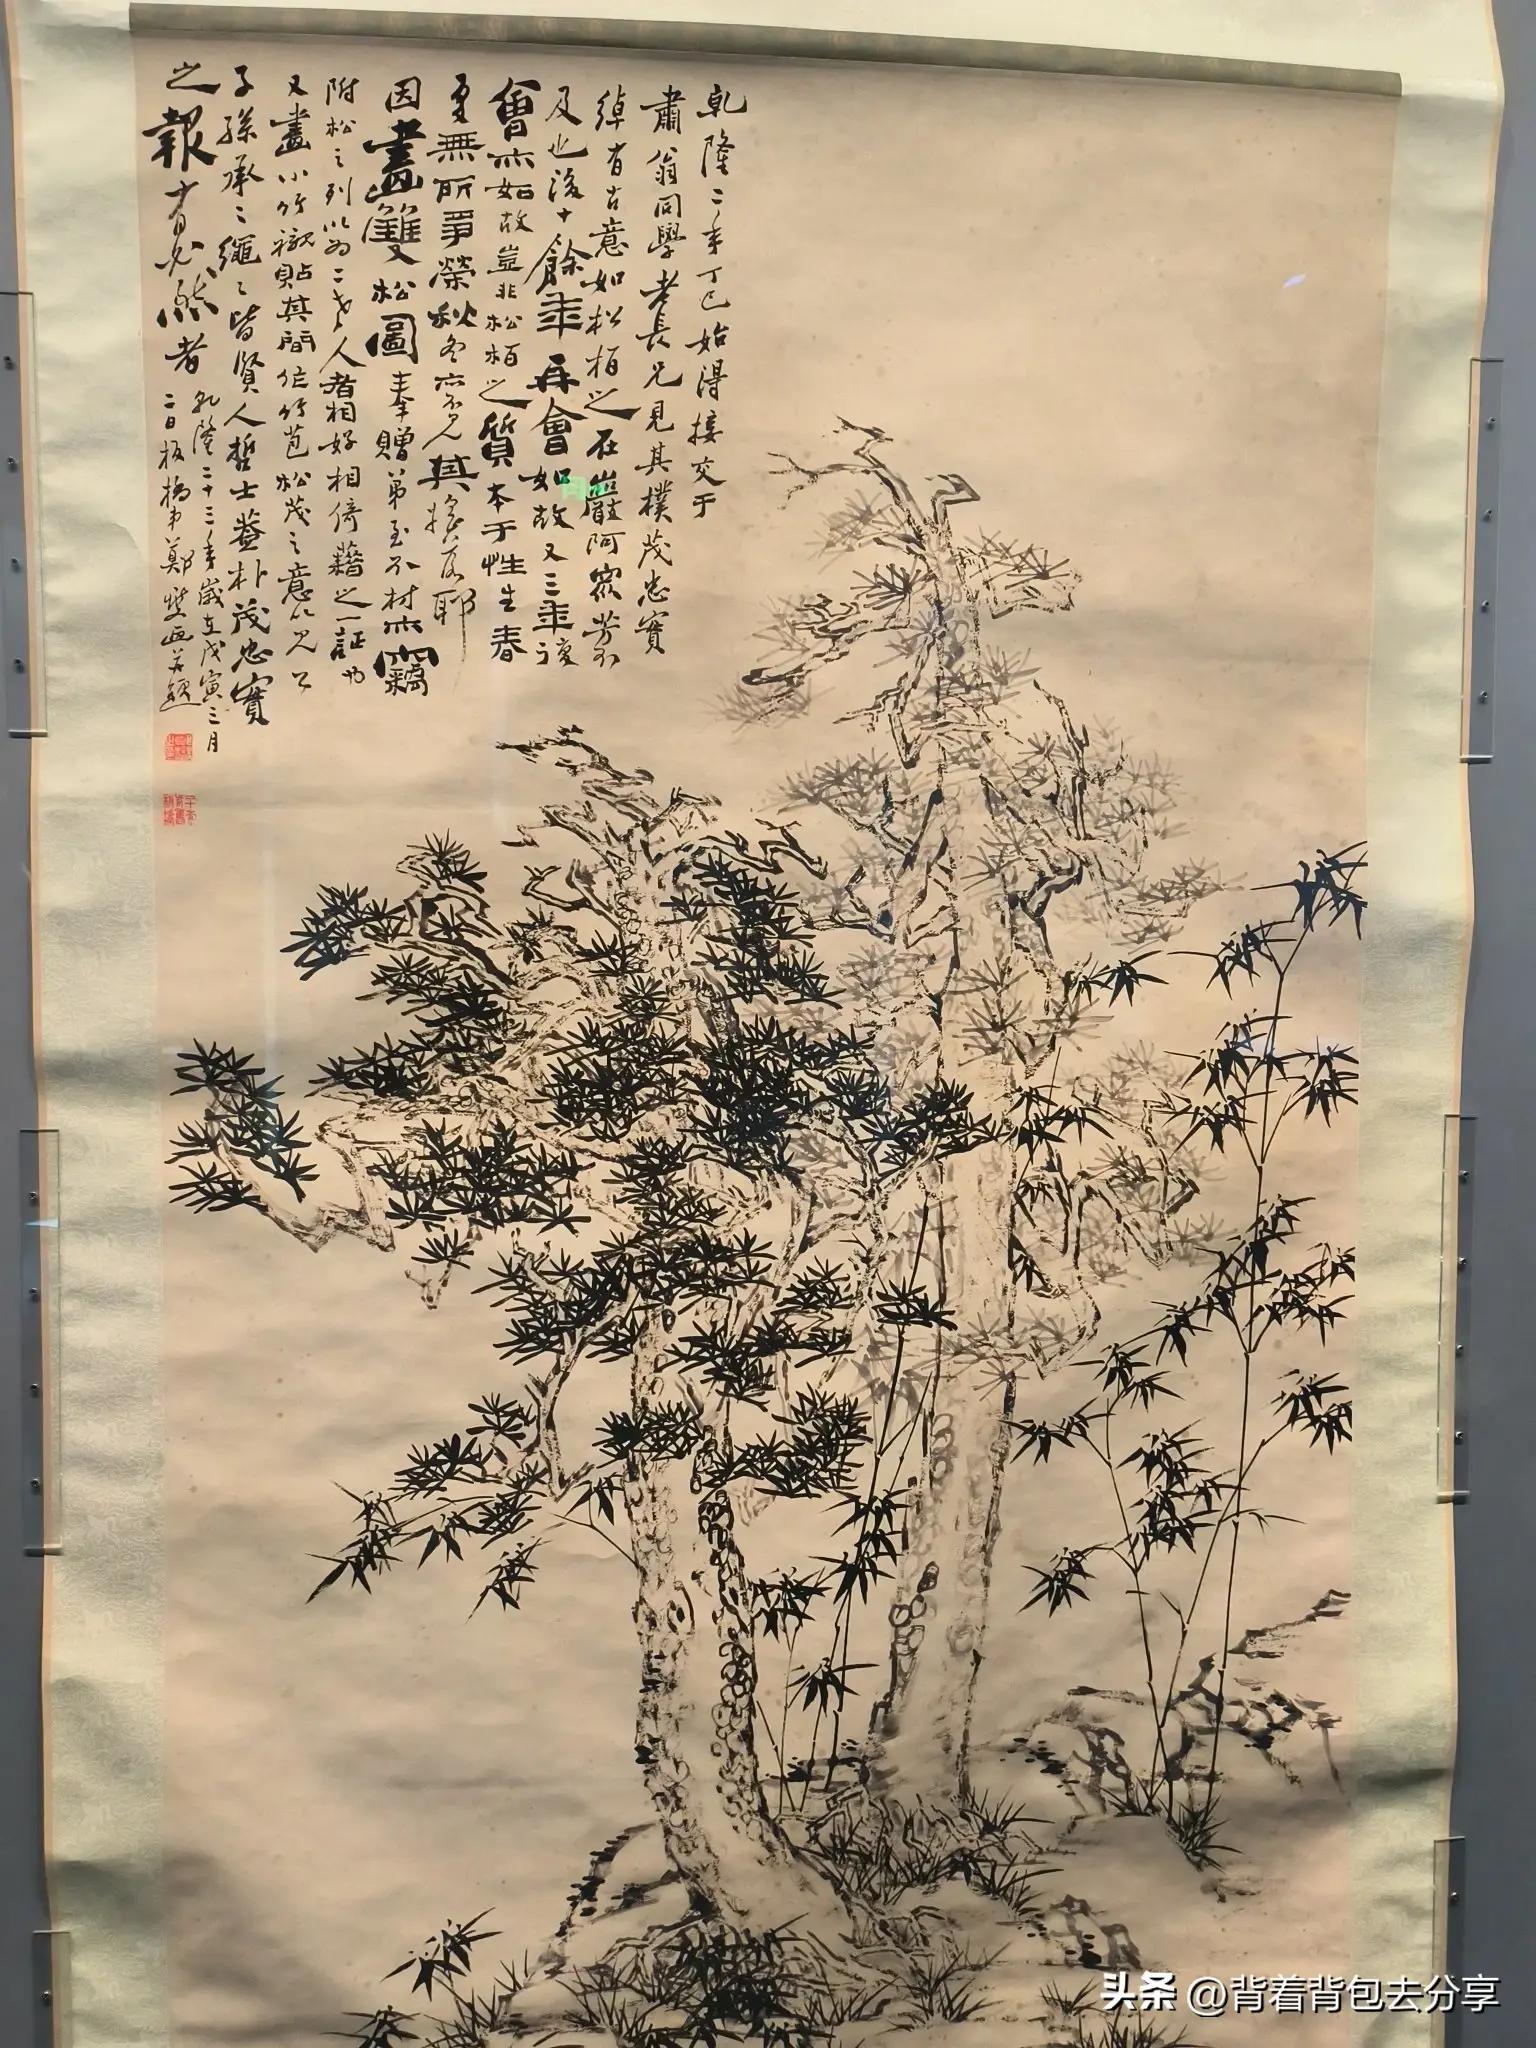 乹隆二年丁巳始得接交于
肅翁同學老長兄見其樸茂忠實
綽有古意如松柏之在巖阿眾芳不
及也後十餘年再會如故又三年復
會亦如故豈非松柏之質本于性生春
夏無所爭榮秋冬亦不見其搖落耶
因畫雙松圖奉贈弟至不材亦竊
附松之列以為二老人者相好相倚藉之一証也
又畫小竹襯貼其間作竹苞松茂之意以見公
子孫承承繩繩皆賢人哲士蓋朴茂忠實
之報有必然者
乹隆二十三年歲在戊寅三月
二日板橋弟鄭燮畫并題
头条 @背着背包去分享